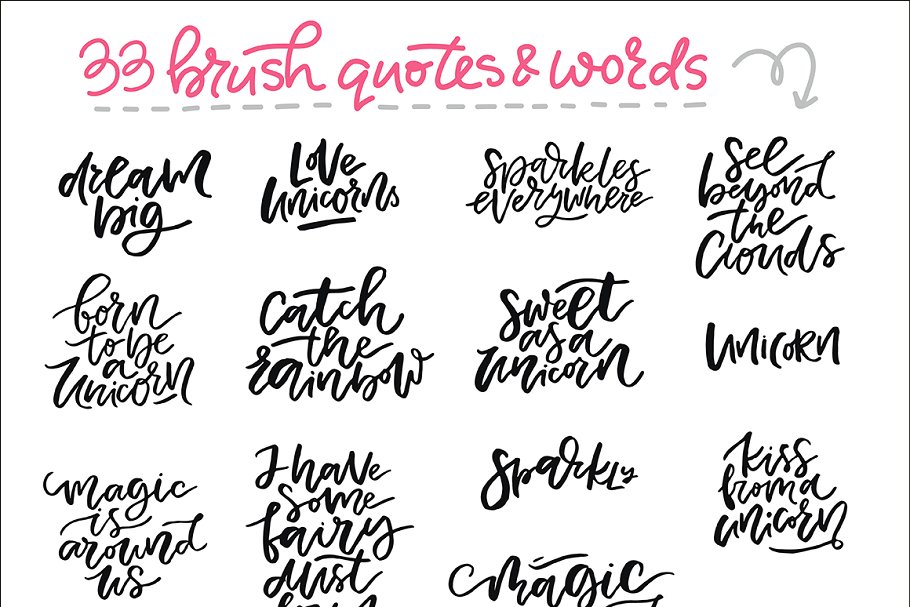 33 brush quotes & words
dream
big
Love
Unicorns
Sparkles
everywhere
see
beyond
the
clouds
born
to be
a
Unicorn
Catch
the
rainbow
Sweet
as a
unicorn
UNICORN
magic
is
around
us
I have
some
fairy
dust
Sparkly
magic
kiss
from a
unicorn